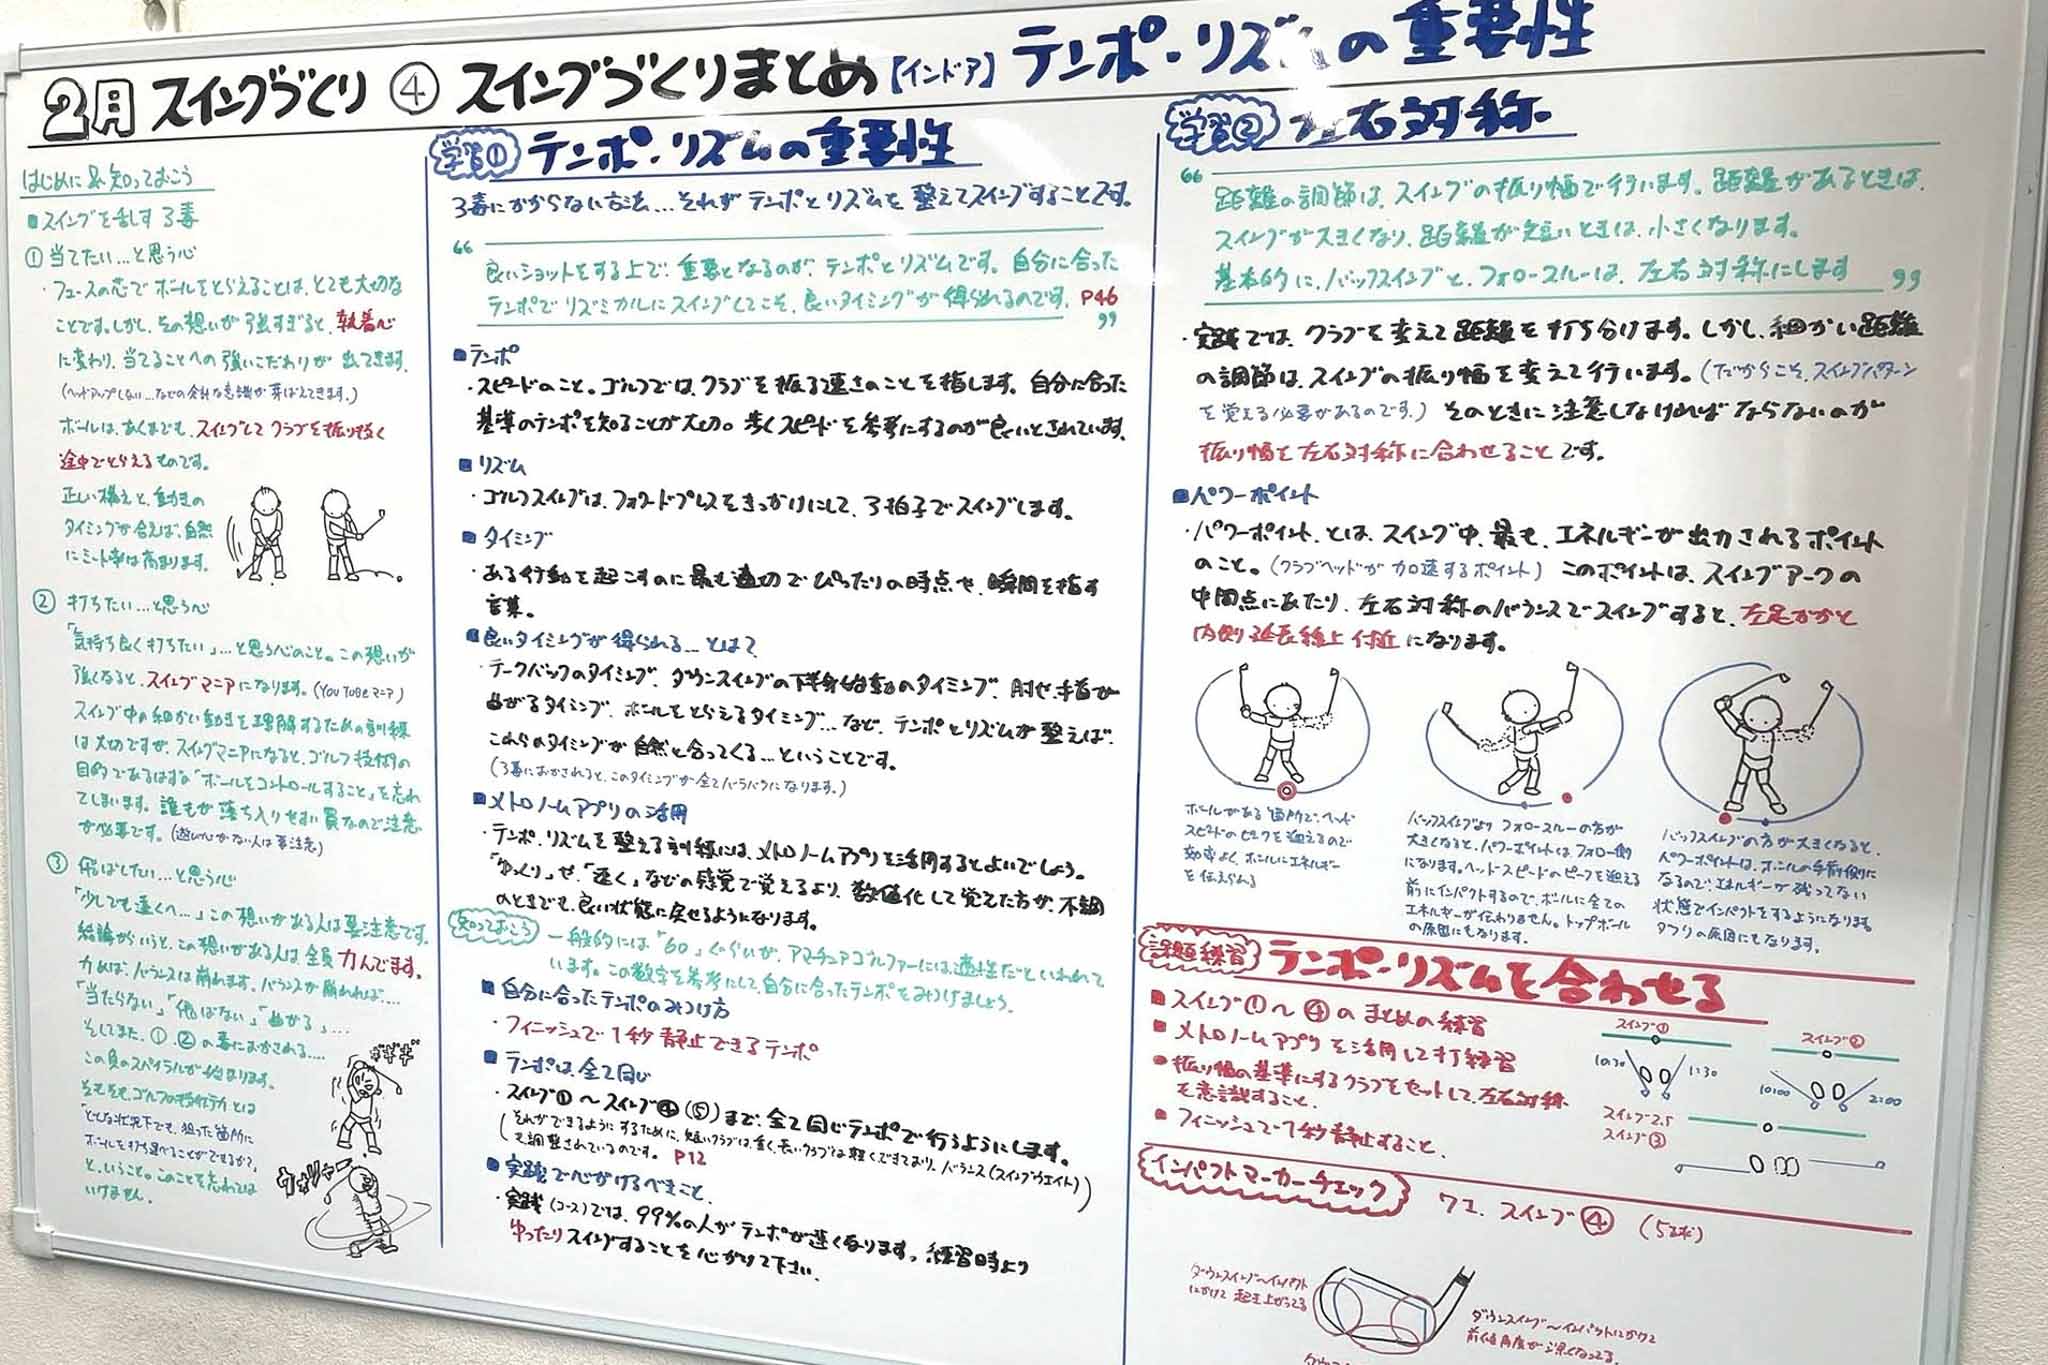 2月 スイングづくり ④ スイングづくりまとめ【インドア】テンポ・リズムの重要性
はじめに 知っておこう
■スイングを乱す 3毒
① 当てたい…と思う心
・フェースの芯でボールをとらえることは、とても大切な
ことです。しかし、その想いが強すぎると、執着心
に変わり、当てることへの強いこだわりが出てきます。
(ヘッドアップしない…などの余計な意識が芽ばえてきます。)
ボールは、あくまでも、スイングしてクラブを振り抜く
途中でとらえるものです。
正しい構えと、動きの
タイミングが合えば、自然
にミート率は高まります。
② 打ちたい…と思う心
「気持ち良く打ちたい」…と思う心のこと。この想いが
強くなると、スイングマニアになります。(YouTubeマニア)
スイング中の細かい動きを理解するための訓練
は大切ですが、スイングマニアになると、ゴルフ技術の
目的であるはずな「ボールをコントロールすること」を忘れ
てしまいます。誰もが落ち入りやすい罠なので注意
が必要です。(遊び心がない人は要注意)
③ 飛ばしたい…と思う心
「少しでも遠くへ…」この想いがある人は要注意です。
結論からいうと、この想いがある人は、全員力んでます。
力めば、バランスは崩れます。バランスが崩れれば…
「当たらない」「飛ばない」「曲がる」…
そしてまた、①、②の毒におかされる…
この負のスパイラルが始まります。
そもそも、ゴルフの技術力とは
「どんな状況下でも、狙った箇所に
ボールを打ち運べることができるか?」
と、いうこと。このことを忘れては
いけません。
ギギギ
ウォリャー
学習① テンポ・リズムの重要性
3毒にかからない方法…それがテンポとリズムを整えてスイングすることです。
“
良いショットをする上で、重要となるのが、テンポとリズムです。自分に合った
テンポでリズミカルにスイングしてこそ、良いタイミングが得られるのです。P46
”
■テンポ
・スピードのこと。ゴルフでは、クラブを振る速さのことを指します。自分に合った
基準のテンポを知ることが大切。歩くスピードを参考にするのが良いとされています。
■リズム
・ゴルフスイングは、フォワードプレスをきっかけにして、3拍子でスイングします。
■タイミング
・ある行動を起こすのに最も適切でぴったりの時点や、瞬間を指す
言葉。
■良いタイミングが得られる…とは?
・テークバックのタイミング、ダウンスイングの下半身始動のタイミング、肘や、手首が
曲がるタイミング、ボールをとらえるタイミング…など、テンポとリズムが整えば、
これらのタイミングが自然と合ってくる…ということです。
(3毒におかされると、このタイミングが全てバラバラになります。)
■メトロノームアプリの活用
・テンポ、リズムを整える訓練には、メトロノームアプリを活用するとよいでしょう。
「ゆっくり」や、「速く」などの感覚で覚えるより、数値化して覚えた方が、不調
のときでも、良い状態に戻せるようになります。
知っておこう
一般的には「60」ぐらいが、アマチュアゴルファーには適性だといわれて
います。この数字を参考にして、自分に合ったテンポをみつけましょう。
■自分に合ったテンポのみつけ方
・フィニッシュで1秒静止できるテンポ
■テンポは、全て同じ
・スイング①～スイング④(⑤)まで、全て同じテンポで行うようにします。
(それができるようにするために、短いクラブは、重く、長いクラブは軽くできており、バランス(スイングウエイト)
を調整されているのです。P12)
■実践で心がけるべきこと。
・実践(コース)では、99%の人がテンポが速くなります。練習時より
ゆったりスイングすることを心がけて下さい。
学習② 左右対称
“
距離の調節は、スイングの振り幅で行います。距離があるときは、
スイングが大きくなり、距離が短いときは、小さくなります。
基本的に、バックスイングと、フォロースルーは、左右対称にします
”
・実践では、クラブを変えて距離を打ち分けます。しかし、細かい距離
の調節は、スイングの振り幅を変えて行います。(だからこそ、スイングパターン
を覚える必要があるのです。)そのときに注意しなければならないのが
振り幅を左右対称に合わせることです。
■パワーポイント
・パワーポイントとは、スイング中、最も、エネルギーが出力されるポイント
のこと。(クラブヘッドが加速するポイント)このポイントは、スイングアークの
中間点にあたり、左右対称のバランスでスイングすると、左足かかと
内側延長線上付近になります。
ボールがある箇所で、ヘッド
スピードのピークを迎えるので
効率よく、ボールにエネルギー
を伝えられる
バックスイングよりフォロースルーの方が
大きくなると、パワーポイントは、フォロー側
になります。ヘッドスピードのピークを迎える
前にインパクトするので、ボールに全ての
エネルギーが伝わりません。トップボール
の原因にもなります。
バックスイングの方が大きくなると、
パワーポイントは、ボールの手前側に
なるので、エネルギーが残ってない
状態でインパクトをするようになります。
ダフリの原因にもなります。
課題練習 テンポ・リズムを合わせる
■スイング①～④のまとめの練習
■メトロノームアプリを活用して打練習
●振り幅の基準にするクラブをセットして、左右対称
を意識すること。
■フィニッシュで1秒静止すること。
スイング①
10:30
1:30
スイング②
10:00
2:00
スイング2.5
スイング③
インパクトマーカーチェック 7I、スイング④ (5球)
ダウンスイング～インパクト
にかけて 起き上がってる
ダウンスイング～インパクトにかけて
前傾角度が深くなってる。